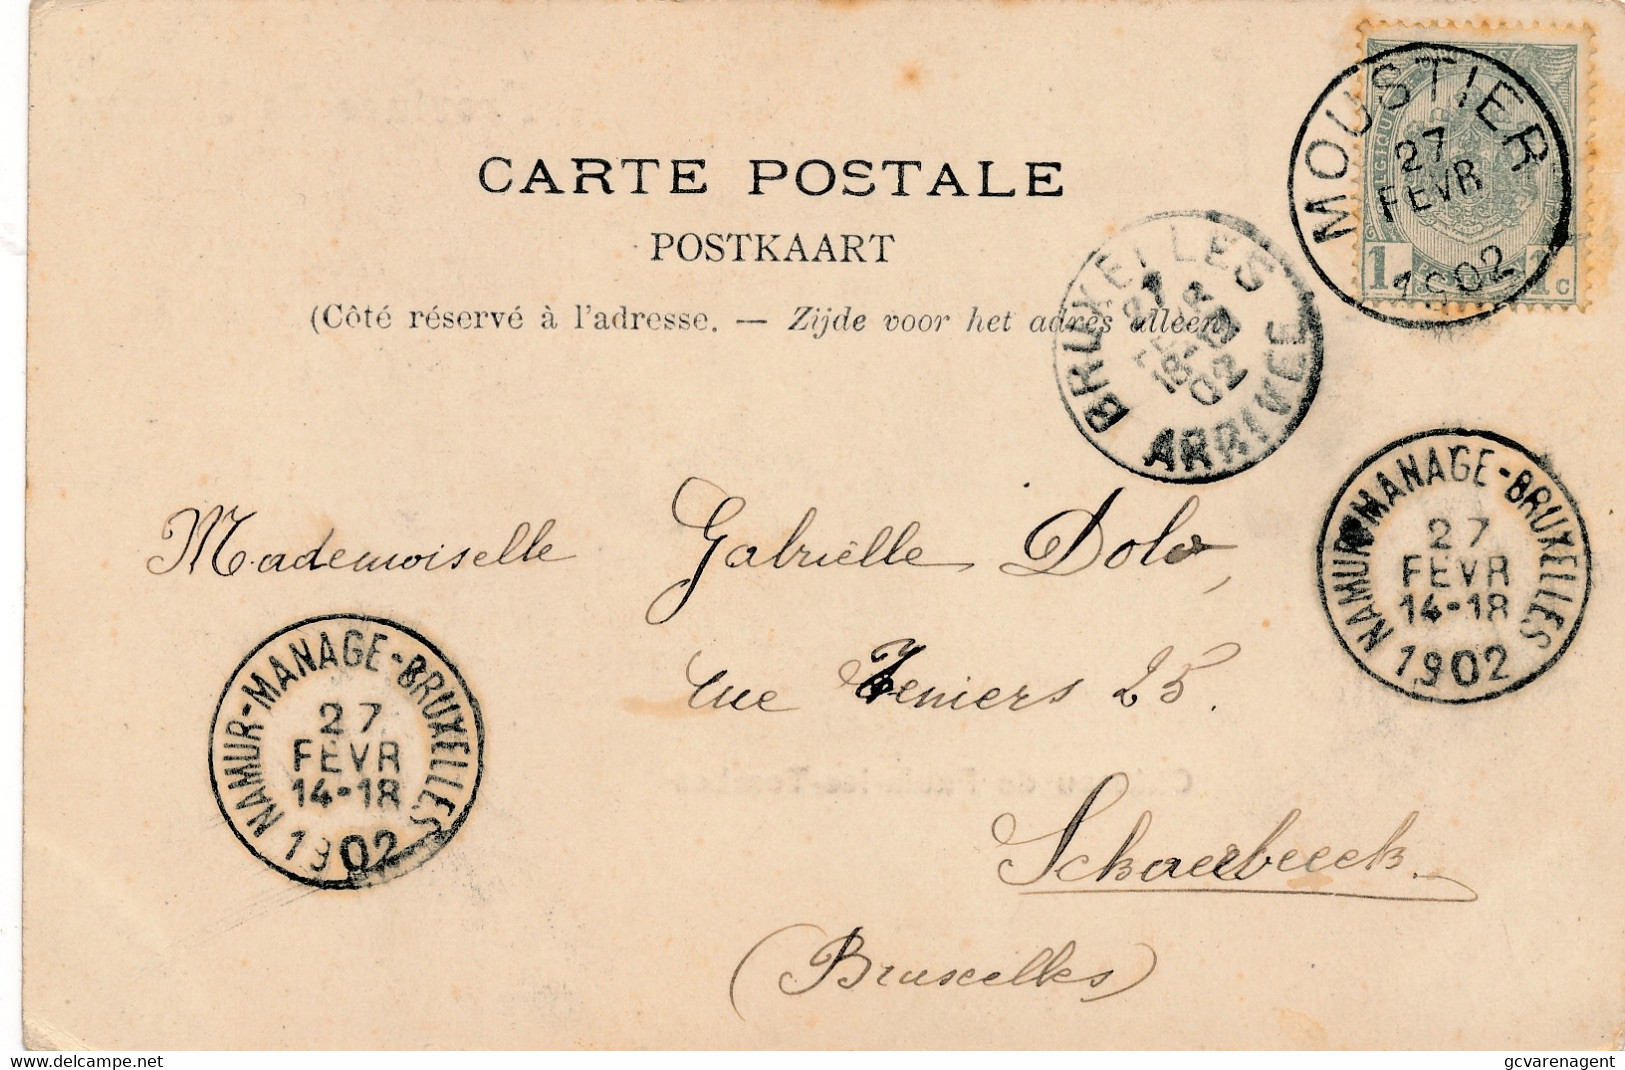 CARTE POSTALE
POSTKAART
(Côté réservé à l'adresse. — Zijde voor het adres alleen)
MOUSTIER
27
FEVR
1902
1 1 C
BRUXELLES
27
18-19
02
ARRIVEE
NAMUR-MANAGE-BRUXELLES
27
FEVR
14-18
1902
Mademoiselle Gabriëlle Dolo,
rue Teniers 25.
NAMUR-MANAGE-BRUXELLES
27
FEVR
14-18
1902
Schaerbeeck.
(Bruxelles)
delcampe.net
gcvarenagent